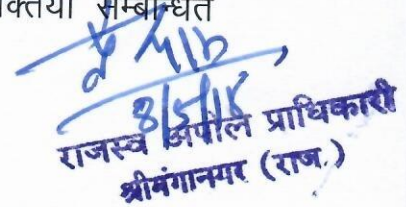 क्तियां सम्बन्धित
8/5/18
राजस्व अपील प्राधिकारी
श्रीगंगानगर (राज.)